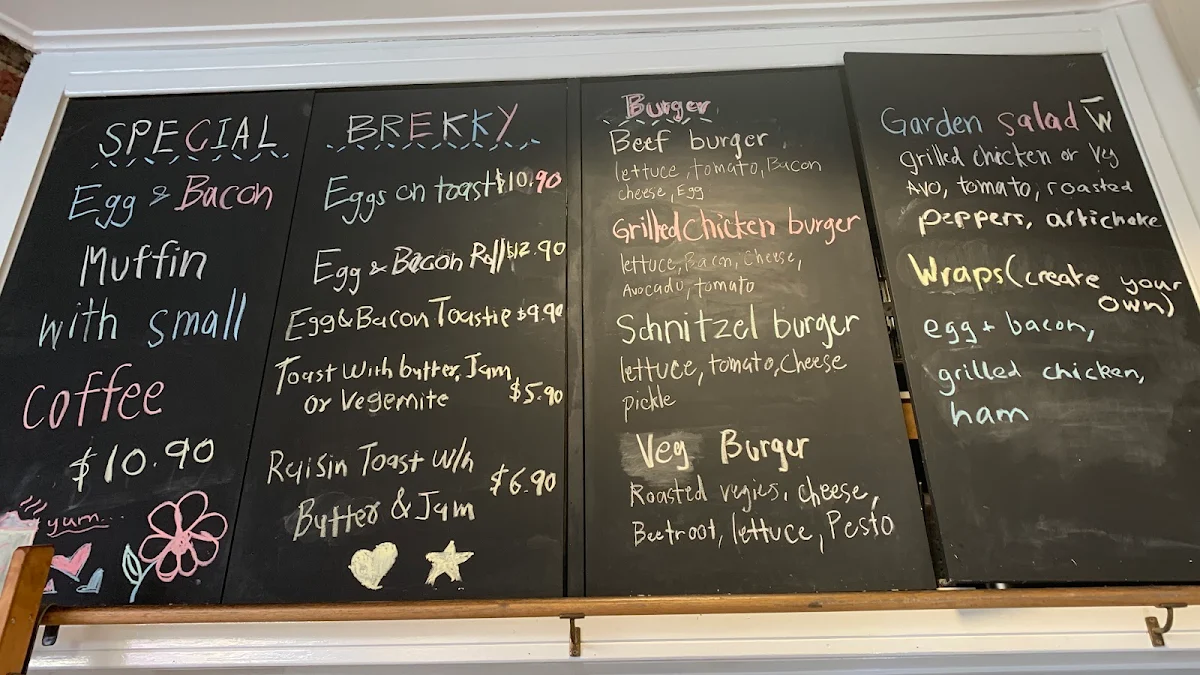 SPECIAL
Egg & Bacon
Muffin
with small
coffee
$10.90
yum...
BREKKY
Eggs on toast $10.90
Egg & Bacon Roll $12.90
Egg & Bacon Toastie $9.90
Toast With butter, Jam
or Vegemite $5.90
Raisin Toast W/h
Butter & Jam $6.90
Burger
Beef burger
lettuce, tomato, Bacon
cheese, Egg
Grilled Chicken burger
lettuce, Bacon, Cheese,
Avocado, tomato
Schnitzel burger
lettuce, tomato, Cheese
pickle
Veg Burger
Roasted vegies, cheese,
Beetroot, lettuce, Pesto
Garden salad W
grilled chicken or Veg
Avo, tomato, roasted
peppers, artichoke
Wraps (create your
own)
egg + bacon,
grilled chicken,
ham